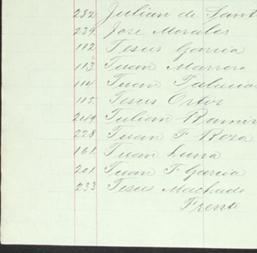 232 Julian de Sant
239 Jose Morales
112 Jesus Garcia
113 Juan Marrero
114 Juan Palacio
115 Jesus Ortos
249 Julian Ramir
228 Juan F Roza
161 Juan Luna
201 Juan F Garcia
233 Jesus Machado
Frente